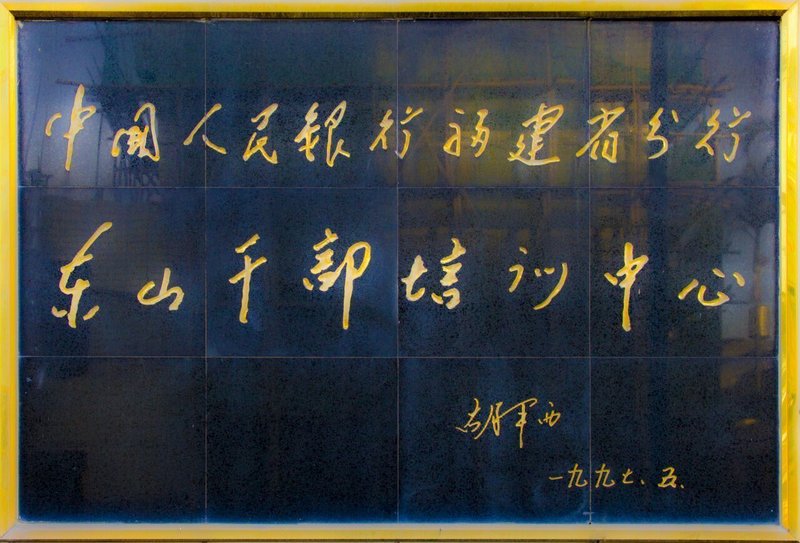 中国人民银行福建省分行
东山干部培训中心
胡军西
一九九七.五.